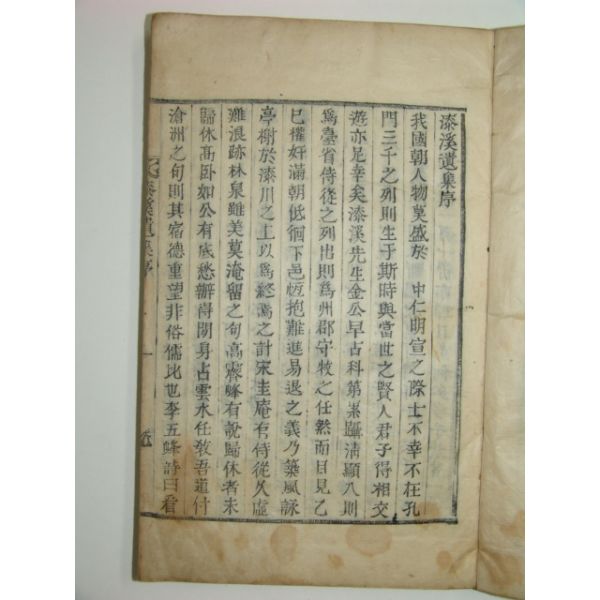 漆溪遺集序
我國朝人物莫盛於 中仁明宣之際士不幸不在孔
門三千之列則生于斯時與當世之賢人君子得相交
遊亦足幸矣漆溪先生金公早占科第累躡淸顯入則
爲臺省侍從之列出則爲州郡守牧之任然而目見乙
巳權奸滿朝低徊下邑恆抱難進易退之義乃築風詠
亭榭於漆川之上以爲終焉之計宋圭庵有侍從久虛
難浪跡林泉雖美莫淹留之句高霽峰有說歸休者未
歸休高臥如公有底愁辦得閒身占雲水任敎吾道付
滄洲之句則其宿德重望非俗儒比也李五峰詩曰看
漆溪遺集序
一